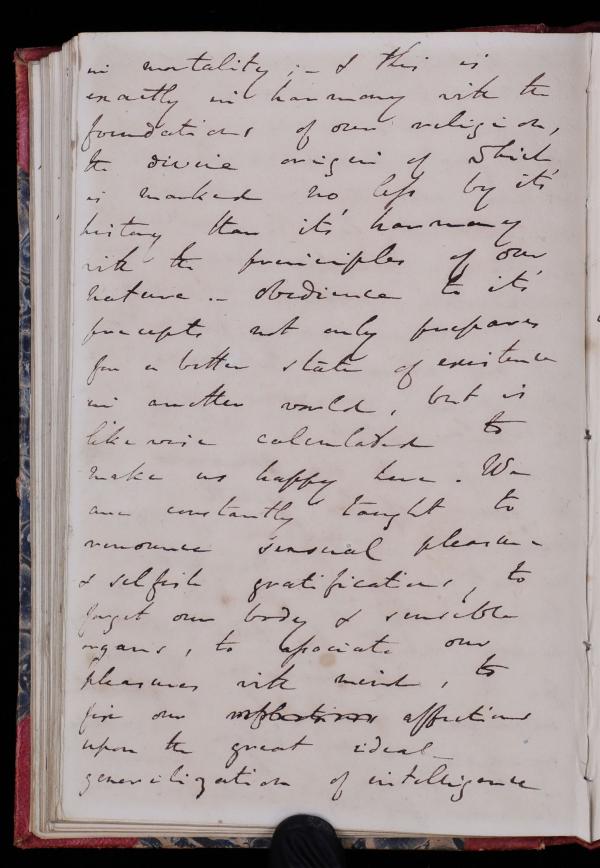 in mortality; - & this is
exactly in harmony with the
foundations of our religion,
the divine origin of which
is marked no less by it's
history than it's harmony
with the principles of our
nature. - obedience to it's
precepts not only prepares
for a better state of existence
in another world, but is
likewise calculated to
make us happy here. We
are constantly taught to
renounce sensual pleasure
& selfish gratifications, to
forget our body & sensible
organs, to associate our
pleasures with mind, to
fix our affections
upon the great ideal
generalization of intelligence